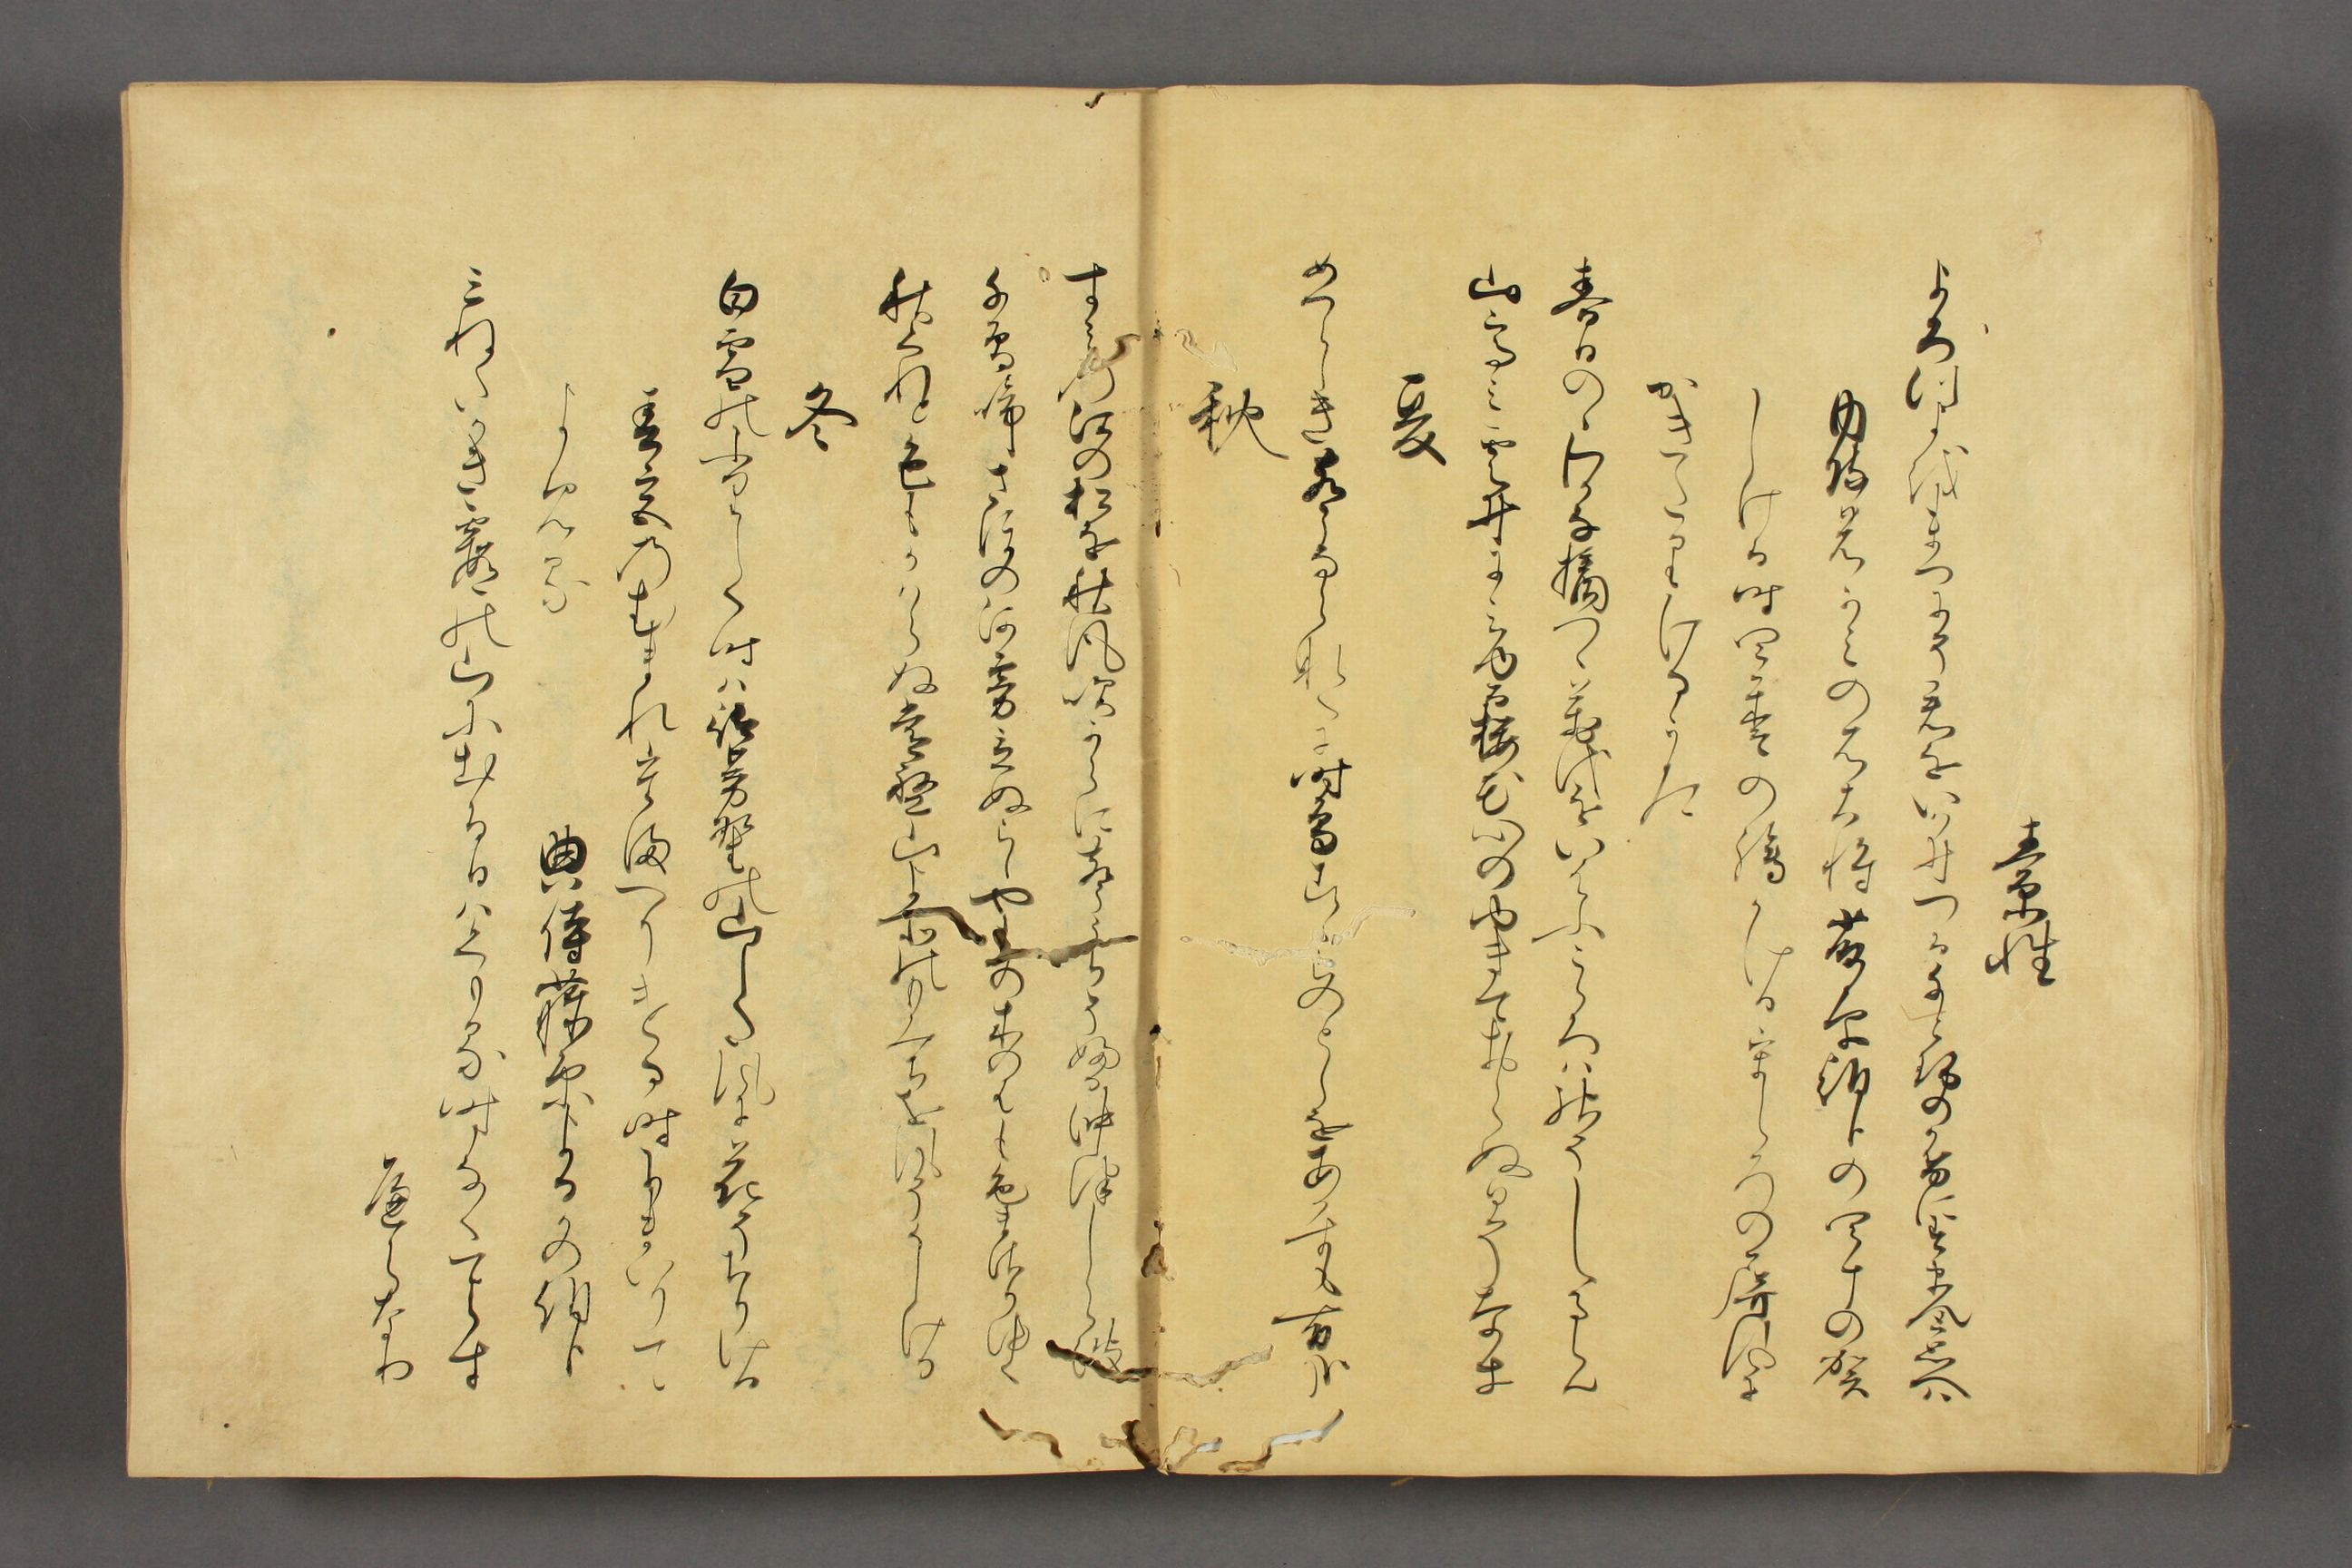 素性
よろつ代をまつにそ君をいはひつる千とせのかけにすまんと思へは
内侍のかみの右大将藤原朝臣の四十の賀
しける時四季の繪かけるうしろの屏風に
かきたりけるうた
春日のにわか菜摘つゝ萬代をいはふこゝろは神そしるらん
山高み雲井にみゆる桜花心のゆきておらぬ日そなき
夏
めつらしき声ならなくに時鳥こゝらのとしをあかすも有哉
秋
すみの江の松を秋風吹からに声うちそふる沖津しら波
千鳥啼さほの河霧立ぬらし山の木のはも色まさり行
秋くれと色もかはらぬ常盤山よそのもみちを風そかしける
冬
白雪のふりしく時はみ吉野の山した風に花そちりける
春宮のむまれ給へりける時にまいりて
よめる
典侍藤原よるかの朝臣
みねたかき春日の山に出る日はくもる時なくてらす
へらなり